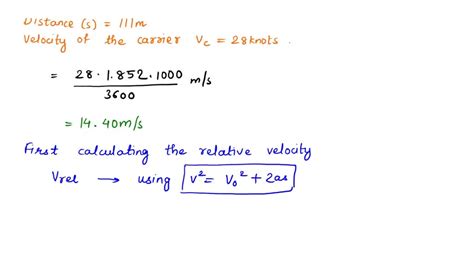 Distance (s) = 111m
Velocity of the carrier Vc = 28knots.
= 28·1.852·1000 / 3600 m/s
= 14.40m/s
First calculating the relative velocity
Vrel → using V² = V₀² + 2as